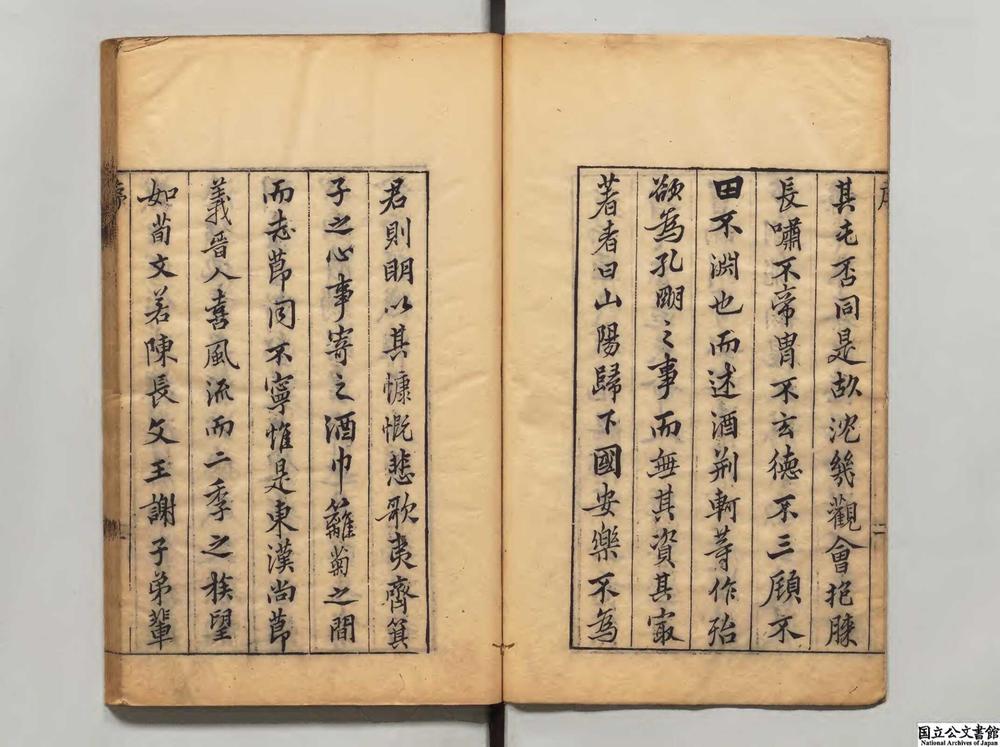 其屯否同是故沈幾觀會抱膝
長嘯不帝胄不玄德不三顧不
田不淵也而述酒荊軻等作殆
欲為孔明之事而無其資其冣
著者曰山陽歸下國安樂不為
君則明以其慷慨悲歌夷齊箕
子之心事寄之酒巾籬菊之間
而志莭同不寧惟是東漢尚莭
義晉人喜風流而二季之族望
如荀文若陳長文王謝子弟輩
序
二
国立公文書館
National Archives of Japan